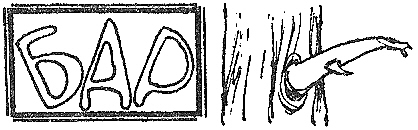 БАР